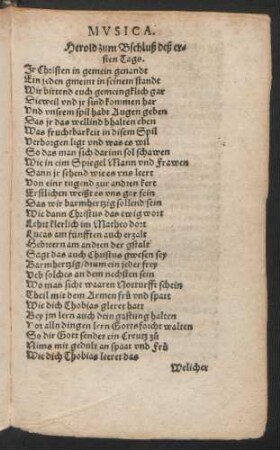 MVSICA.
Herold zum Bschluß deß er-
sten Tags.
Ir Christen in gemein genandt
Ein jeden gmeint in seinem stande
Wir bittend euch gemeingklich gar
Dieweil vnd jr sind kommen har
Vnd vnserm spil habt Augen geben
Das jr das wellind bhalten eben
Was fruchtbarkeit in disem Spil
Verborgen ligt vnd was es wil
So das man sich darinn sol schawen
Wie in ein Spiegel Mann vnd Frawen
Dann jr sehend wie es vns leert
Von einr tugend zur andren kert
Erstlichen weißt es vns gar fein
Das wir barmhertzig sollend sein
Wie dann Christus das ewig wort
Lehrt klerlich im Matheo dort
Lucas am fünfften auch erzalt
Hebreern am andren der gstalt
Sagt das auch Christus gwesen sey
Barmhertzig/drum ein jeder frey
Veb solches an dem nechsten sein
Wo man sicht waaren Notturfft schein
Theil mit dem Armen frü vnd spatt
Wie dich Thobias gleret hatt
Bey jm lern auch dein gastung halten
Vor alls dingen lern Gotts forcht walten
So dir Gott sendet ein Creutz zů
Nims mit gedult an spaat vnd Frü
Wie dich Thobias leeret das
Welicher